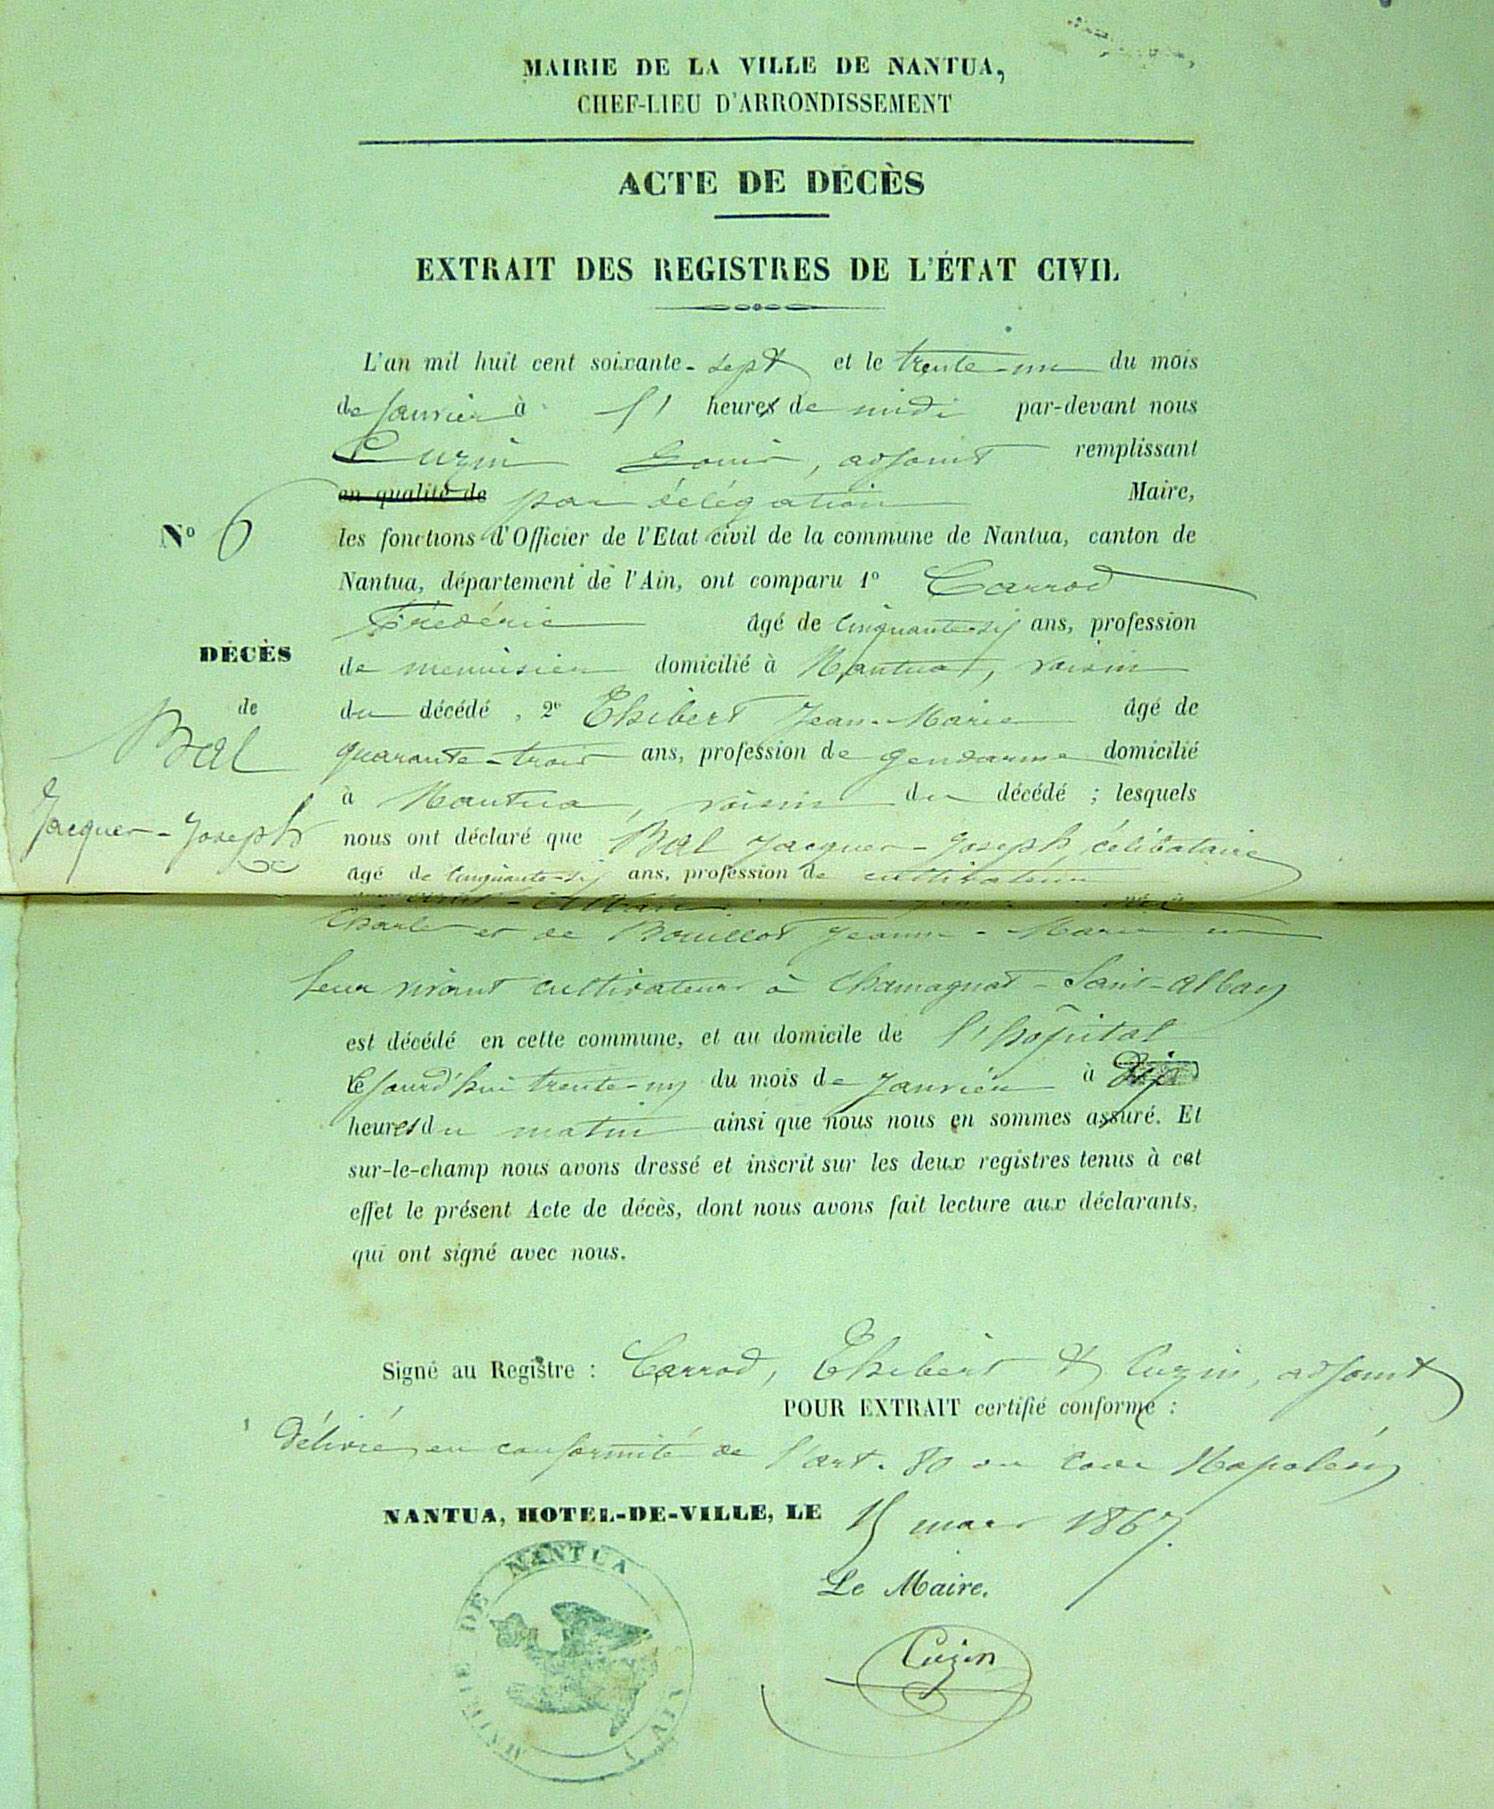 MAIRIE DE LA VILLE DE NANTUA,
CHEF-LIEU D'ARRONDISSEMENT
ACTE DE DÉCÈS
EXTRAIT DES REGISTRES DE L'ÉTAT CIVIL
L'an mil huit cent soixante-sept et le trente-un du mois
de Janvier à l' heures de midi par-devant nous
Cuzin Louis, adjoint remplissant
en qualité de par délégation Maire,
N° 6
les fonctions d'Officier de l'Etat civil de la commune de Nantua, canton de
Nantua, département de l'Ain, ont comparu 1° Carrod
Frédéric âgé de cinquante-six ans, profession
de menuisier domicilié à Nantua, voisin
du décédé, 2° Thibert Jean-Marie âgé de
quarante-trois ans, profession de gendarme domicilié
à Nantua, voisin du décédé ; lesquels
DÉCÈS
de
Bal
Jacques-Joseph
nous ont déclaré que Bal Jacques-Joseph célibataire
âgé de cinquante-six ans, profession de cultivateur
Charles et de Bouillot Jeanne-Marie en
leur vivant cultivateurs à Chamagnat-Saint-Alban
est décédé en cette commune, et au domicile de l'hôpital
cejourd'hui trente-un du mois de Janvier à dix
heures du matin ainsi que nous nous en sommes assuré. Et
sur-le-champ nous avons dressé et inscrit sur les deux registres tenus à cet
effet le présent Acte de décès, dont nous avons fait lecture aux déclarants,
qui ont signé avec nous.
Signé au Registre : Carrod, Thibert & Cuzin, adjoint
POUR EXTRAIT certifié conforme :
Délivré en conformité de l'art. 80 du Code Napoléon
NANTUA, HOTEL-DE-VILLE, LE 15 mars 1867.
Le Maire.
Cuzin
MAIRIE DE NANTUA (AIN)